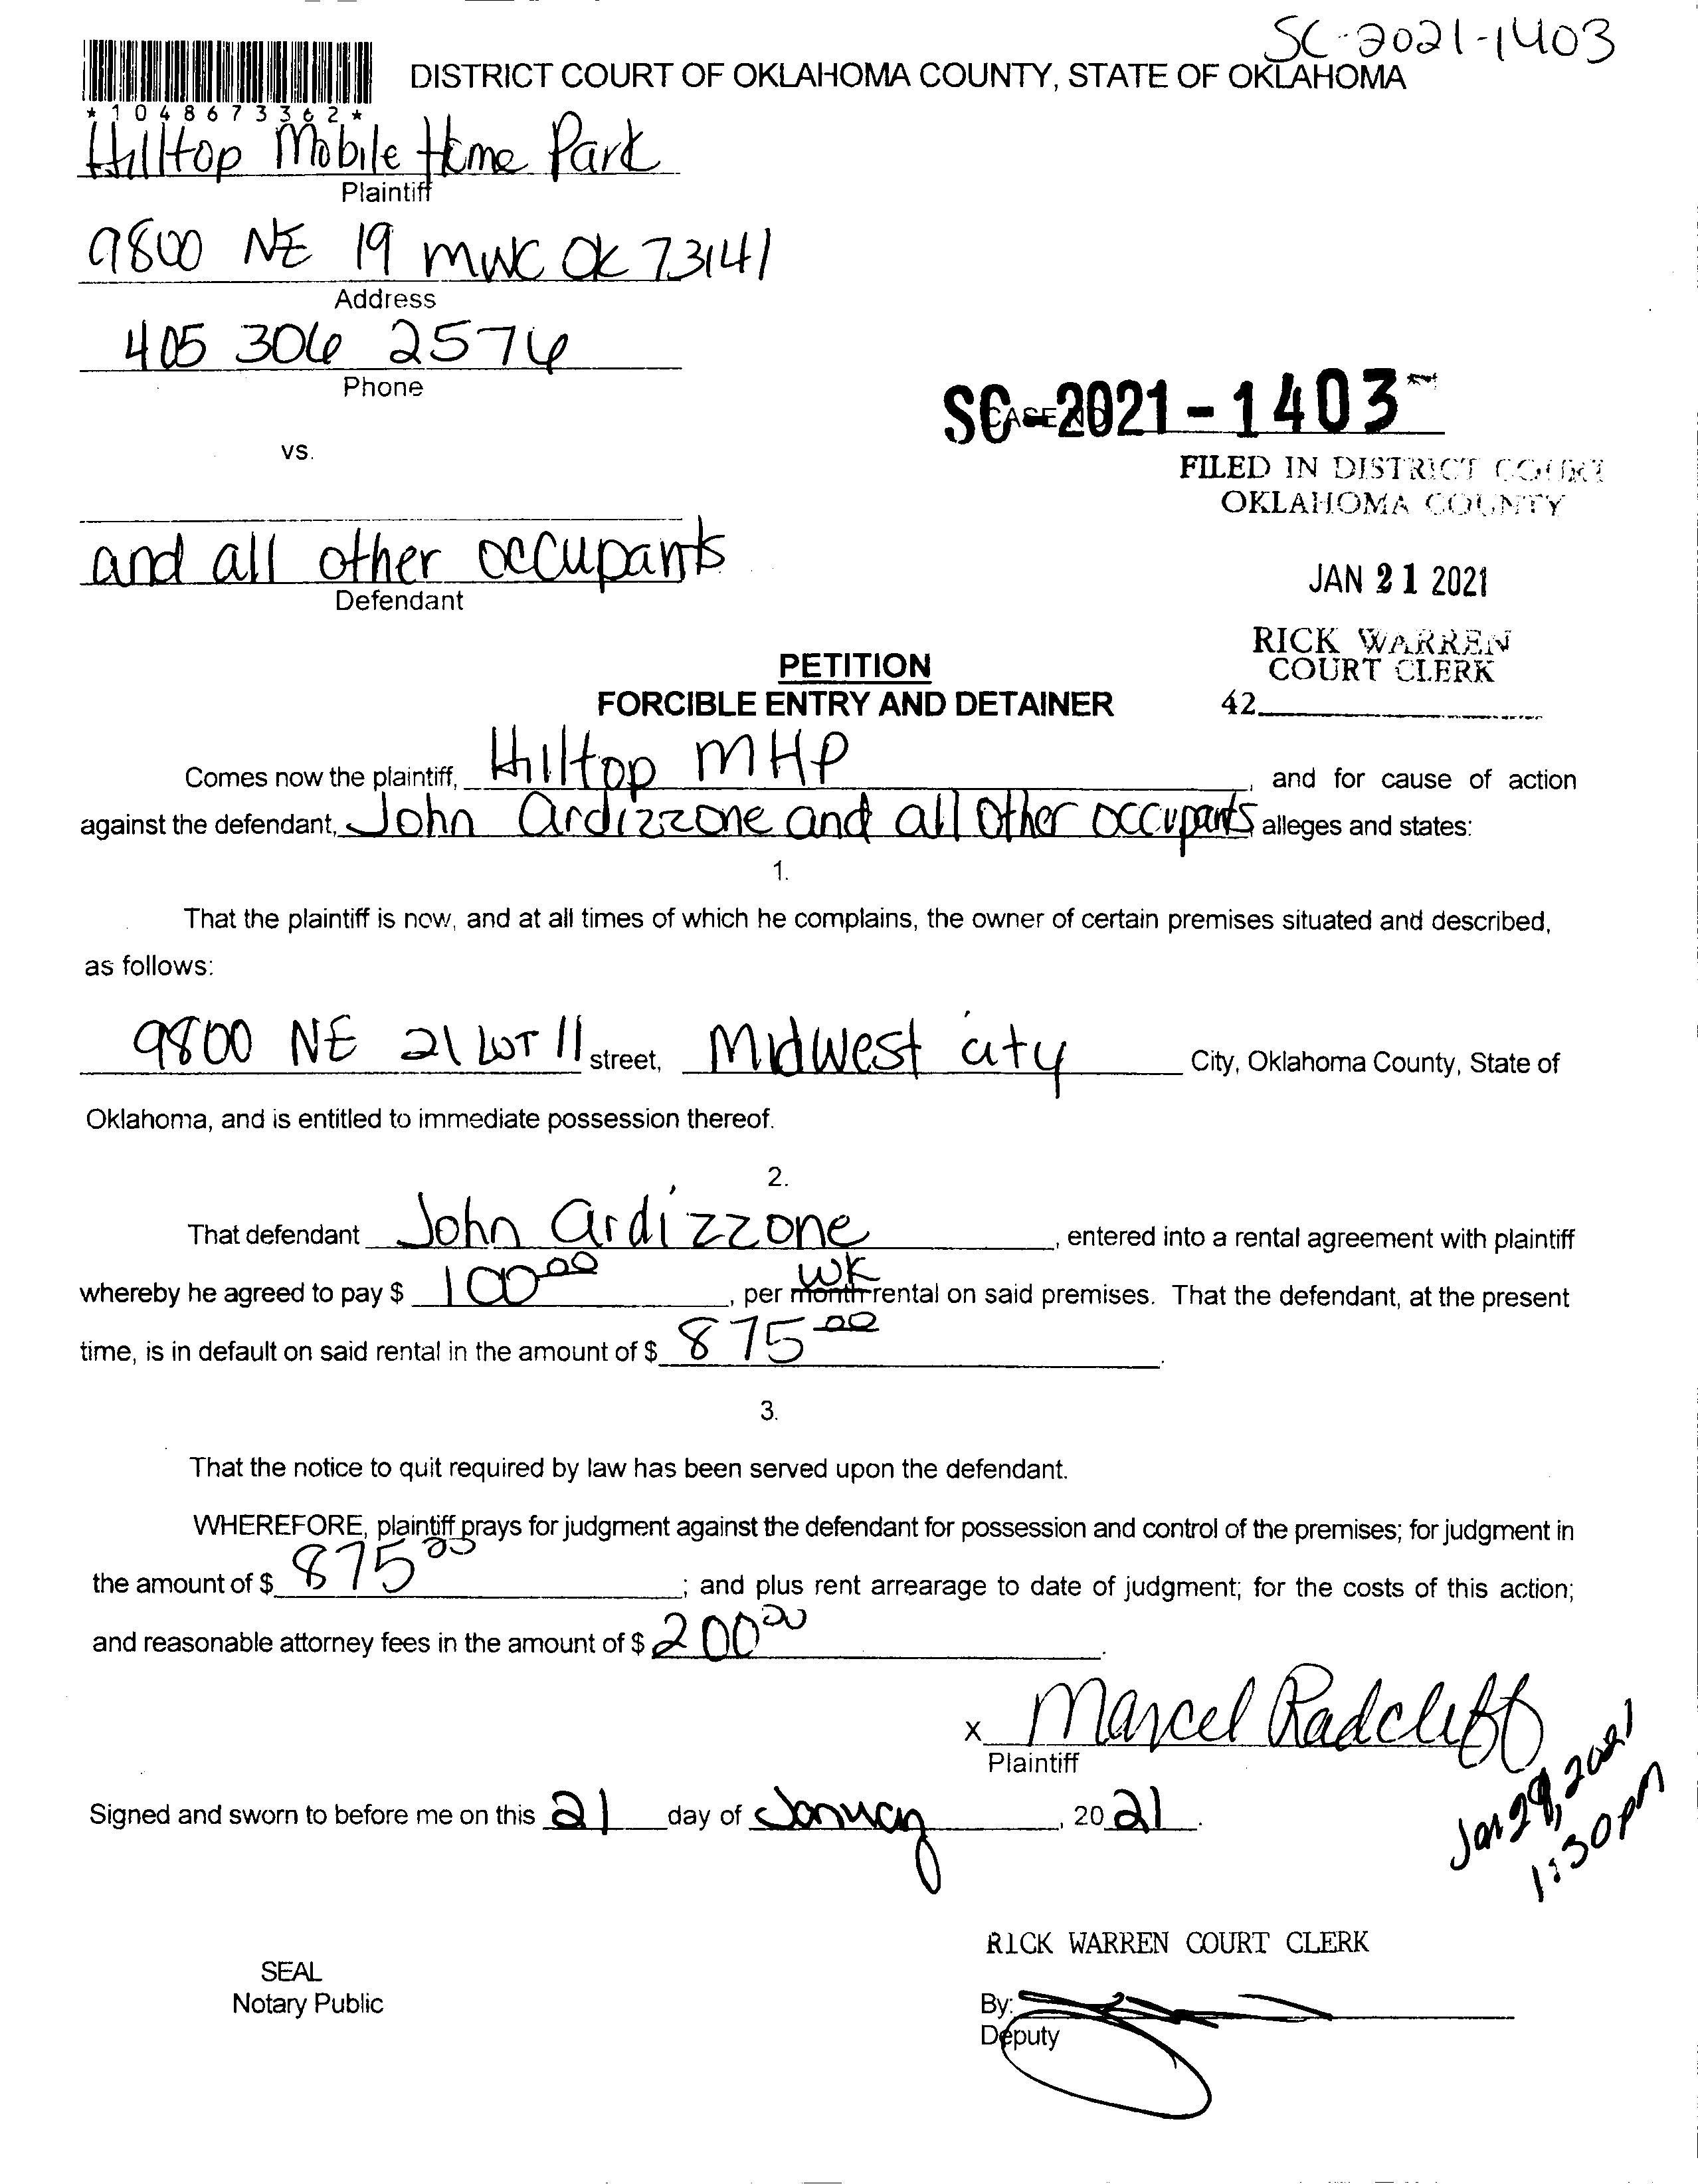 SC-2021-1403
DISTRICT COURT OF OKLAHOMA COUNTY, STATE OF OKLAHOMA
* 1 0 4 8 6 7 3 3 6 2 *
Hilltop Mobile Home Park
Plaintiff
9800 NE 19 MWC OK 73141
Address
405 306 2576
Phone
SC-2021-1403
CASE NO
vs.
FILED IN DISTRICT COURT
OKLAHOMA COUNTY
and all other occupants
Defendant
JAN 21 2021
RICK WARREN
COURT CLERK
42
PETITION
FORCIBLE ENTRY AND DETAINER
Comes now the plaintiff, Hilltop MHP, and for cause of action
against the defendant, John Ardizzone and all other occupants alleges and states:
1.
That the plaintiff is now, and at all times of which he complains, the owner of certain premises situated and described,
as follows:
9800 NE 21 LOT 11 street, Midwest city City, Oklahoma County, State of
Oklahoma, and is entitled to immediate possession thereof.
2.
That defendant John Ardizzone, entered into a rental agreement with plaintiff
whereby he agreed to pay $ 100.00, per month wk rental on said premises. That the defendant, at the present
time, is in default on said rental in the amount of $ 875.00.
3.
That the notice to quit required by law has been served upon the defendant.
WHEREFORE, plaintiff prays for judgment against the defendant for possession and control of the premises; for judgment in
the amount of $ 875.00; and plus rent arrearage to date of judgment; for the costs of this action;
and reasonable attorney fees in the amount of $ 200.00.
X Marcel Radcliff
Plaintiff
Signed and sworn to before me on this 21 day of January, 20 21.
Jan 28, 2021
1:30 pm
RICK WARREN COURT CLERK
SEAL
Notary Public
By:
Deputy